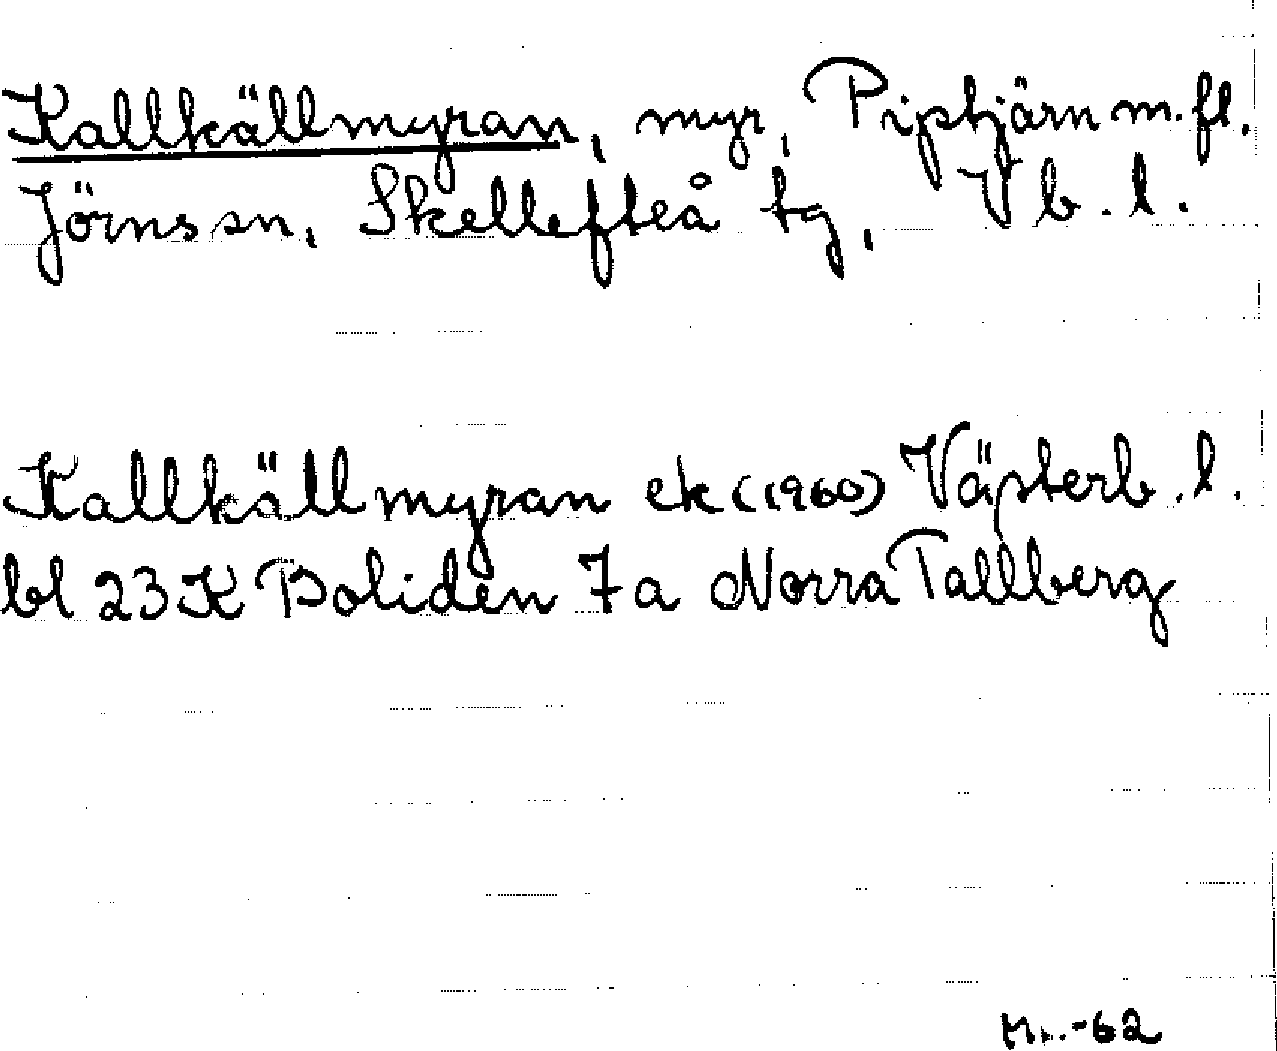 Kallkällmyran, myr, Pipstjärn m.fl.
Jörns sn, Skellefteå tg, Vb.l.
Kallkällmyran ek (1960) Västerb.l.
bl 23 K Boliden 7a Norra Tallberg
-62